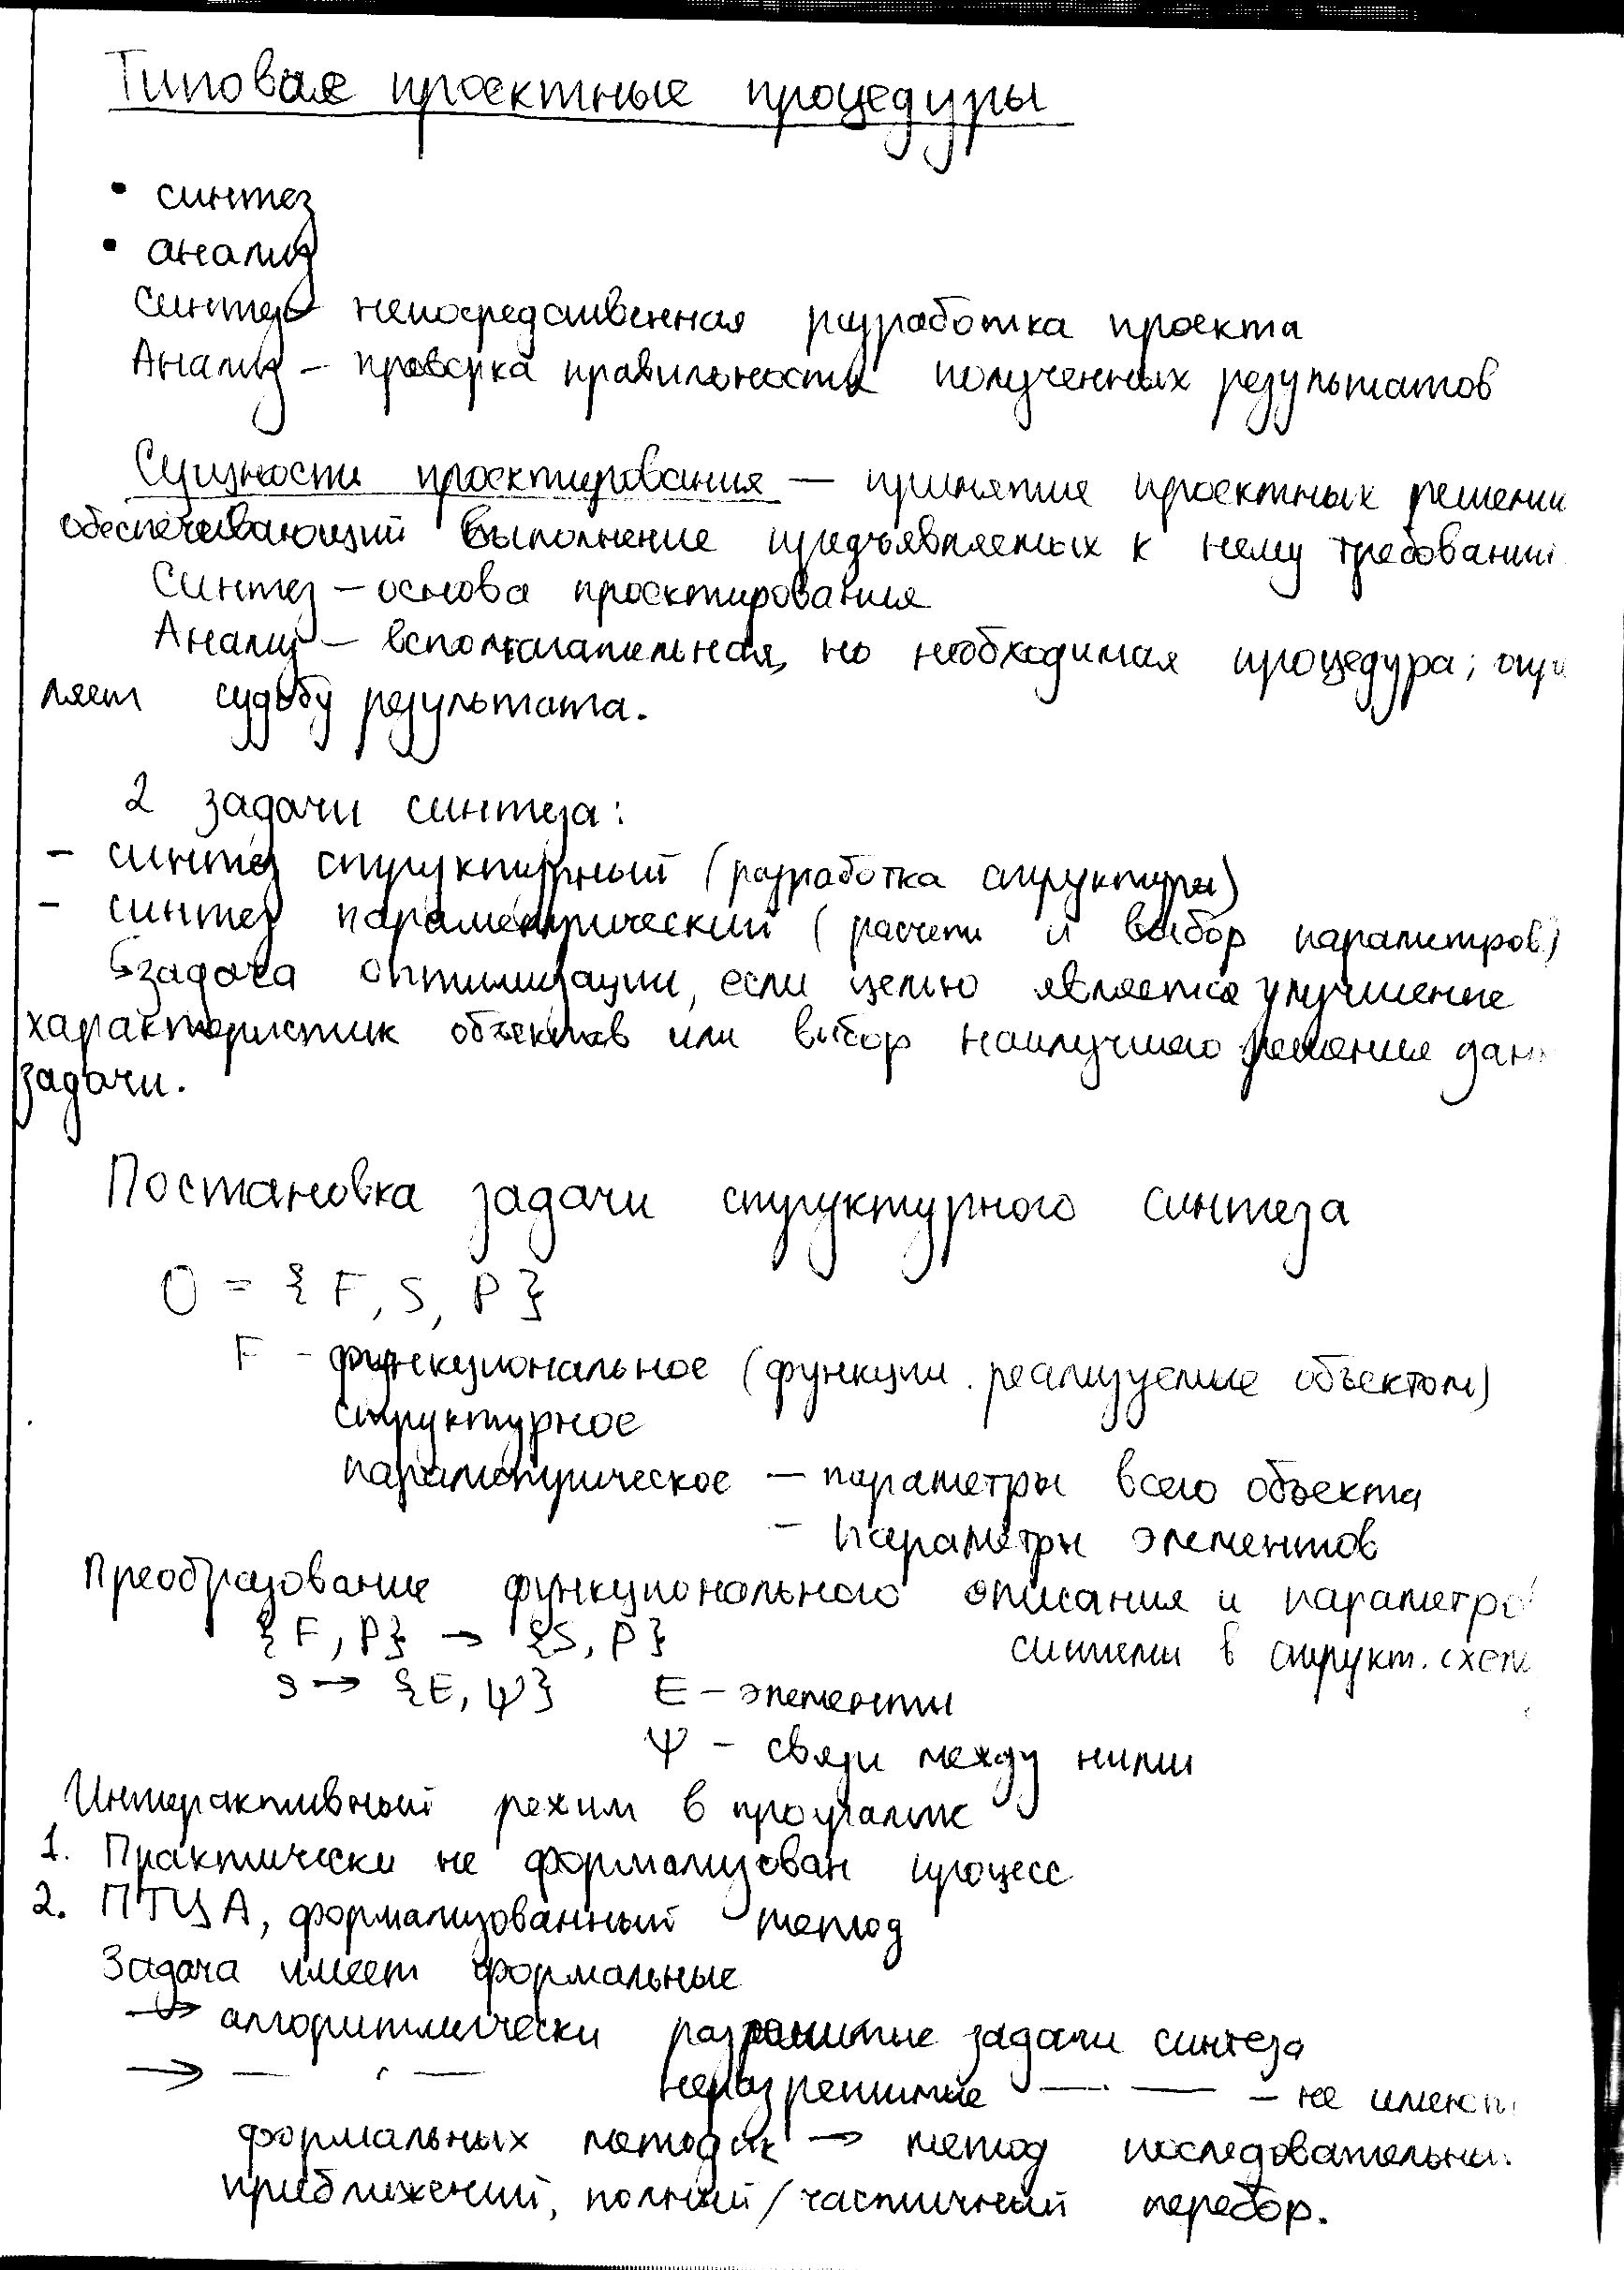 Типовые проектные процедуры
• синтез
• анализ
Синтез – непосредственная разработка проекта
Анализ – проверка правильности полученных результатов
Сущность проектирования — принятие проектных решени
обеспечивающий выполнение предъявляемых к нему требований
Синтез – основа проектирования
Анализ – вспомогательная, но необходимая процедура; опр
ляет судьбу результата.
2 задачи синтеза:
– синтез структурный (разработка структуры)
– синтез параметрический (расчеты и выбор параметров)
↳ задача оптимизации, если целью является улучшение
характеристик объектов или выбор наилучшего решения дан
задачи.
Постановка задачи структурного синтеза
O = {F, S, P}
F – функциональное (функции реализуемые объектом)
структурное
параметрическое – параметры всего объекта
– параметры элементов
Преобразование функционального описания и параметро
{F, P} → {S, P} системы в структ. схем
S → {E, Ψ} E – элементы
Ψ – связи между ними
Интерактивный режим в
1. Практически не формализован процесс
2. ПТЦА, формализованный метод
Задача имеет формальные
→ алгоритмически разрешимые задачи синтеза
→ — " — неразрешимые — " — – не имеют
формальных методик → метод последовательны
приближений, полный/частичный перебор.